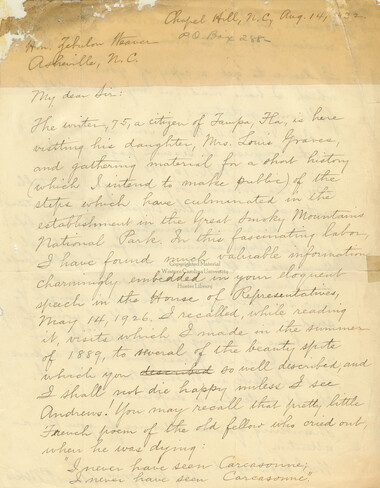 Chapel Hill, N.C., Aug. 14,
P.O. Box
Hon. Zebulon Weaver
Asheville, N.C.
My dear Sir:
The writer, 75, a citizen of Tampa, Fla, is here
visiting his daughter, Mrs. Louis Graves,
and gathering material for a short history
(which I intend to make public) of the
steps which have culminated in the
establishment in the Great Smoky Mountains
National Park. In this fascinating labor,
I have found much valuable information
charmingly embedded in your eloquent
speech in the House of Representatives,
May 14, 1926. I recalled, while reading
it, visits which I made in the summer
of 1889, to several of the beauty spots
which you described so well described, and
I shall not die happy unless I see
Andrews. You may recall that pretty little
French poem of the old fellow who cried out,
when he was dying:
"I never have seen Carcasonne;
I never have seen Carcasonne."
Western Carolina University
Hunter Library